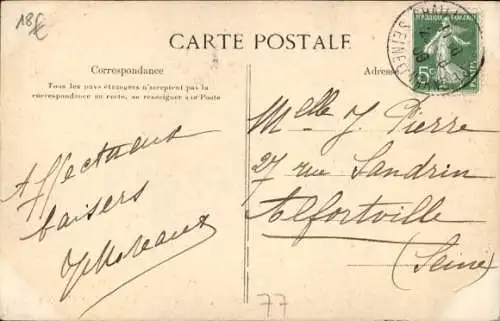 18€
CARTE POSTALE
Correspondance
Tous les pays étrangers n'acceptent pas la
correspondance au recto, se renseigner à la Poste
Adres
REPUBLIQUE FRANÇAISE
5c
POSTES
Affectueux
baisers
Melle J. Pierre
27 rue Sandrin
Alfortville
(Seine)
77